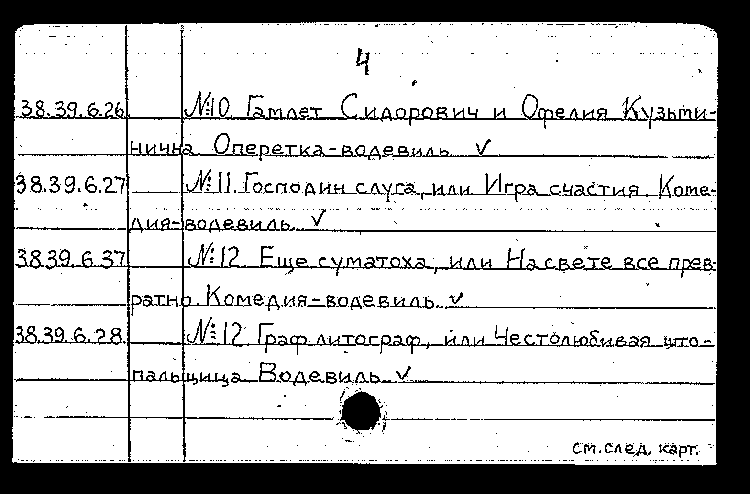 4
38.39.6.26 №10. Гамлет Сидорович и Офелия Кузьми-
нична. Оперетка-водевиль. ✓
38.39.6.27 №11. Господин слуга, или Игра счастия. Коме-
дия-водевиль. ✓
38.39.6.37 №12. Еще суматоха, или На свете все прев-
ратно. Комедия-водевиль. ✓
38.39.6.28. №12. Граф литограф, или Честолюбивая што-
пальщица. Водевиль. ✓
см. след. карт.